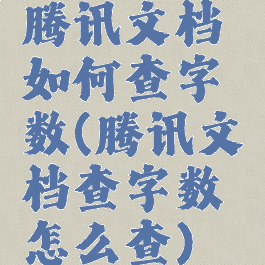 腾讯文档
如何查字
数(腾讯文
档查字数
怎么查)